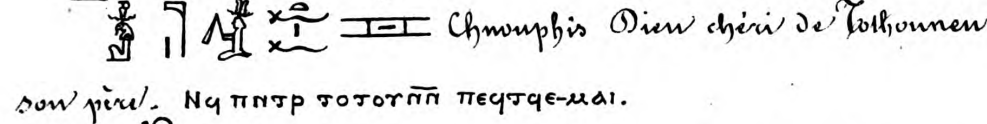 Chnouphis Dieu chéri de Tothounen
son père. Ⲛϥ ⲡⲛⲧⲣ ⲧⲟⲧⲟⲩⲛ̄ⲛ̄ ⲡⲉϥⲧϥⲉ-ⲙⲁⲓ.